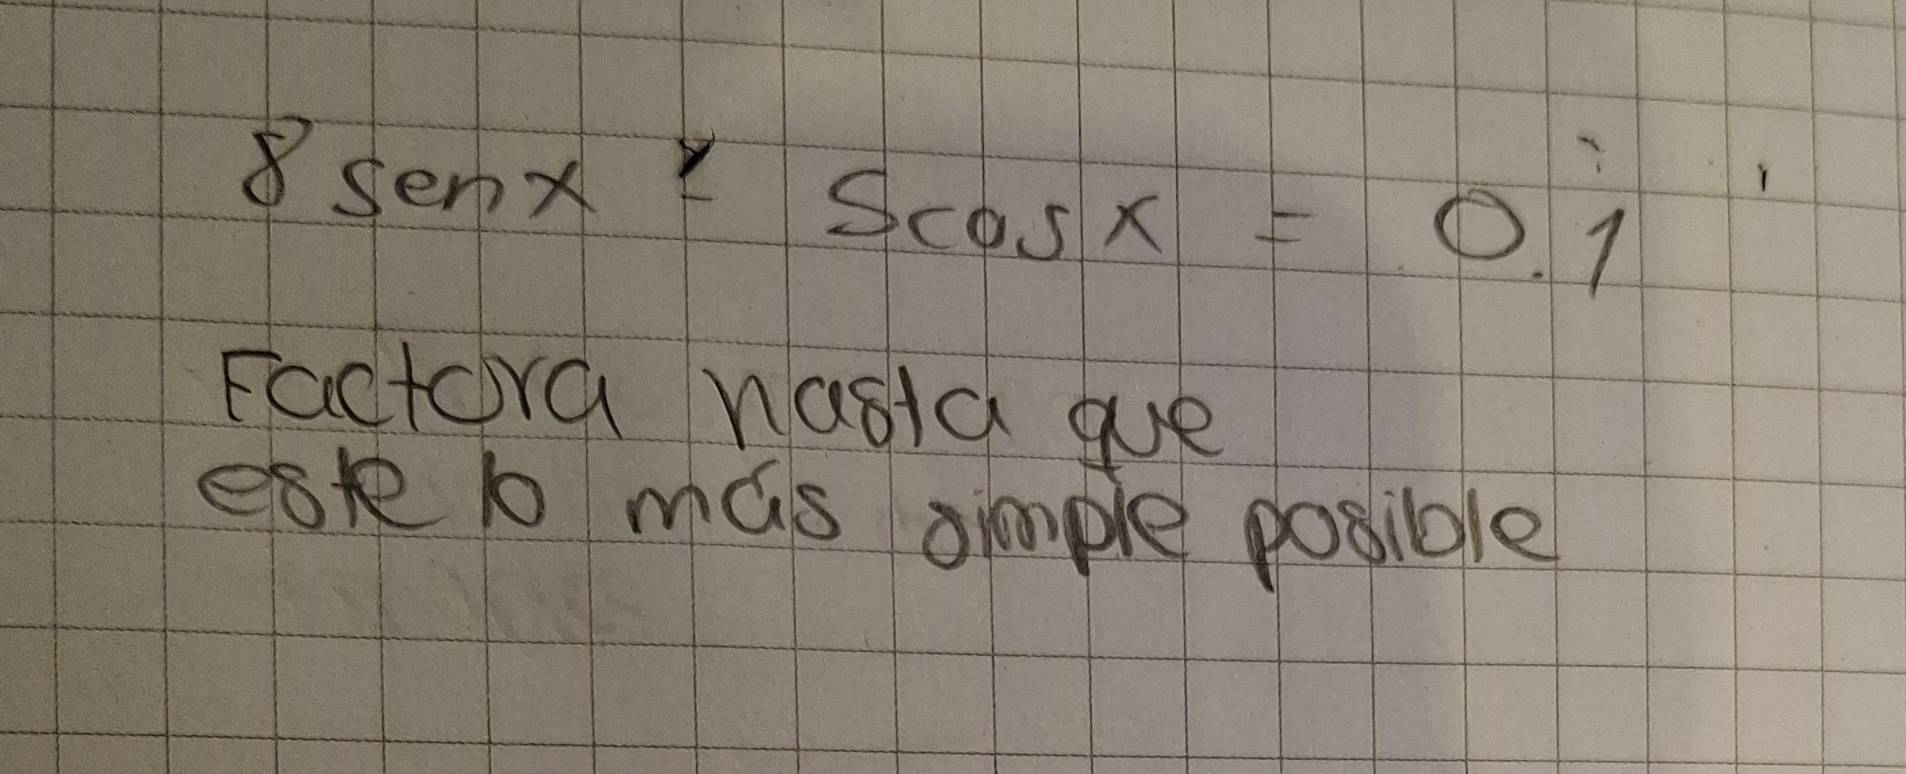 8 senx - 5cosx = 0.1
Factora hasta que
este lo más simple posible